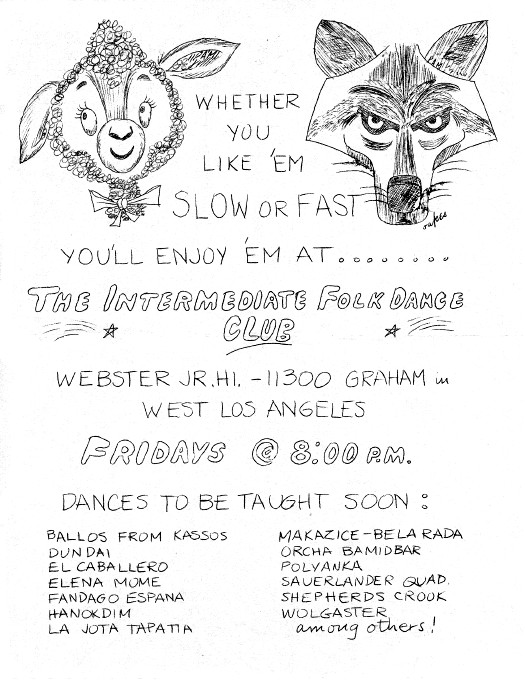 WHETHER
YOU
LIKE 'EM
SLOW OR FAST
oakes
YOU'LL ENJOY 'EM AT.........
THE INTERMEDIATE FOLK DANCE
CLUB
WEBSTER JR.HI. - 11300 GRAHAM in
WEST LOS ANGELES
FRIDAYS @ 8:00 P.M.
DANCES TO BE TAUGHT SOON :
BALLOS FROM KASSOS
DUNDAI
EL CABALLERO
ELENA MOME
FANDAGO ESPANA
HANOKDIM
LA JOTA TAPATIA
MAKAZICE-BELA RADA
ORCHA BAMIDBAR
POLYANKA
SAUERLANDER QUAD.
SHEPHERDS CROOK
WOLGASTER
among others!